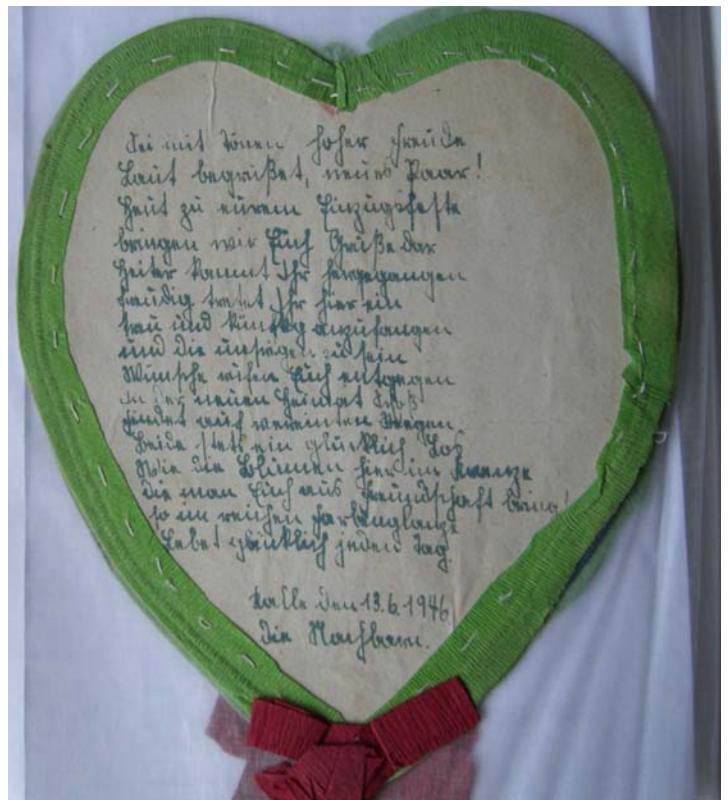 Sei mit Tönen hoher Freude
Laut begrüßet, neues Paar!
Heut zu eurem Einzugsfeste
bringen wir Euch Grüße dar
Heiter kammt Ihr hergegangen
freudig tretet Ihr hier ein
treu und anzufangen
und die unsrigen zu sein
Wünsche rufen Euch entgegen
In der neuen Heimat Schoß
findet auf vereinten Wegen
Beide stets ein glücklich Los
Wie die Blumen hier im Kranze
die man Euch aus Freundschaft bring!
so im reichen Farbenglanze
Lebet glücklich jeden Tag.
Kalle den 13.6.1946
Die Nachbarn.